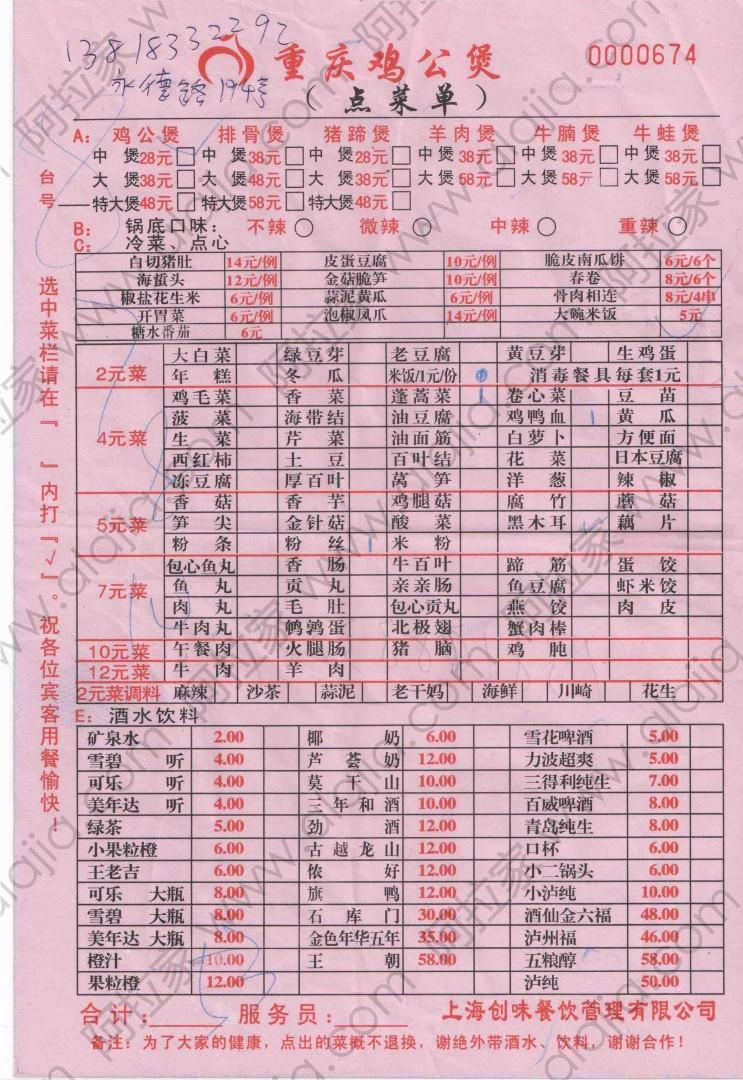 13818332292
永德路194号
重庆鸡公煲
0000674
（点菜单）
A： 鸡公煲 排骨煲 猪蹄煲 羊肉煲 牛腩煲 牛蛙煲
中 煲28元 中 煲38元 中 煲28元 中 煲38元 中 煲38元 中 煲38元
大 煲38元 大 煲48元 大 煲38元 大 煲58元 大 煲58元 大 煲58元
台号 特大煲48元 特大煲58元 特大煲48元
B： 锅底口味： 不辣 微辣 中辣 重辣
C： 冷菜、点心
白切猪肚 14元/例 皮蛋豆腐 10元/例 脆皮南瓜饼 6元/6个
海蜇头 12元/例 金菇脆笋 10元/例 春卷 8元/6个
椒盐花生米 6元/例 蒜泥黄瓜 6元/例 骨肉相连 8元/4串
开胃菜 6元/例 泡椒凤爪 14元/例 大碗米饭 5元
糖水番茄 6元
选中菜栏请在『 』内打『√』。祝各位宾客用餐愉快！
2元菜 大白菜 绿豆芽 老豆腐 黄豆芽 生鸡蛋
年糕 冬瓜 米饭/1元/份 消毒餐具每套1元
4元菜 鸡毛菜 香菜 蓬蒿菜 卷心菜 豆苗
菠菜 海带结 油豆腐 鸡鸭血 黄瓜
生菜 芹菜 油面筋 白萝卜 方便面
西红柿 土豆 百叶结 花菜 日本豆腐
冻豆腐 厚百叶 莴笋 洋葱 辣椒
5元菜 香菇 香芋 鸡腿菇 腐竹 蘑菇
笋尖 金针菇 酸菜 黑木耳 藕片
粉条 粉丝 米粉
7元菜 包心鱼丸 香肠 牛百叶 蹄筋 蛋饺
鱼丸 贡丸 亲亲肠 鱼豆腐 虾米饺
肉丸 毛肚 包心贡丸 燕饺 肉皮
牛肉丸 鹌鹑蛋 北极翅 蟹肉棒
10元菜 午餐肉 火腿肠 猪脑 鸡肫
12元菜 牛肉 羊肉
2元菜调料 麻辣 沙茶 蒜泥 老干妈 海鲜 川崎 花生
E： 酒水饮料
矿泉水 2.00 椰奶 6.00 雪花啤酒 5.00
雪碧 听 4.00 芦荟奶 12.00 力波超爽 5.00
可乐 听 4.00 莫干山 10.00 三得利纯生 7.00
美年达 听 4.00 三年和酒 10.00 百威啤酒 8.00
绿茶 5.00 劲酒 12.00 青岛纯生 8.00
小果粒橙 6.00 古越龙山 12.00 口杯 6.00
王老吉 6.00 侬好 12.00 小二锅头 6.00
可乐 大瓶 8.00 旗鸭 12.00 小泸纯 10.00
雪碧 大瓶 8.00 石库门 30.00 酒仙金六福 48.00
美年达 大瓶 8.00 金色年华五年 35.00 泸州福 46.00
橙汁 10.00 王朝 58.00 五粮醇 58.00
果粒橙 12.00 泸纯 50.00
合计： 服务员： 上海创味餐饮管理有限公司
备注：为了大家的健康，点出的菜概不退换，谢绝外带酒水、饮料，谢谢合作！
阿拉家 www.alajia.com